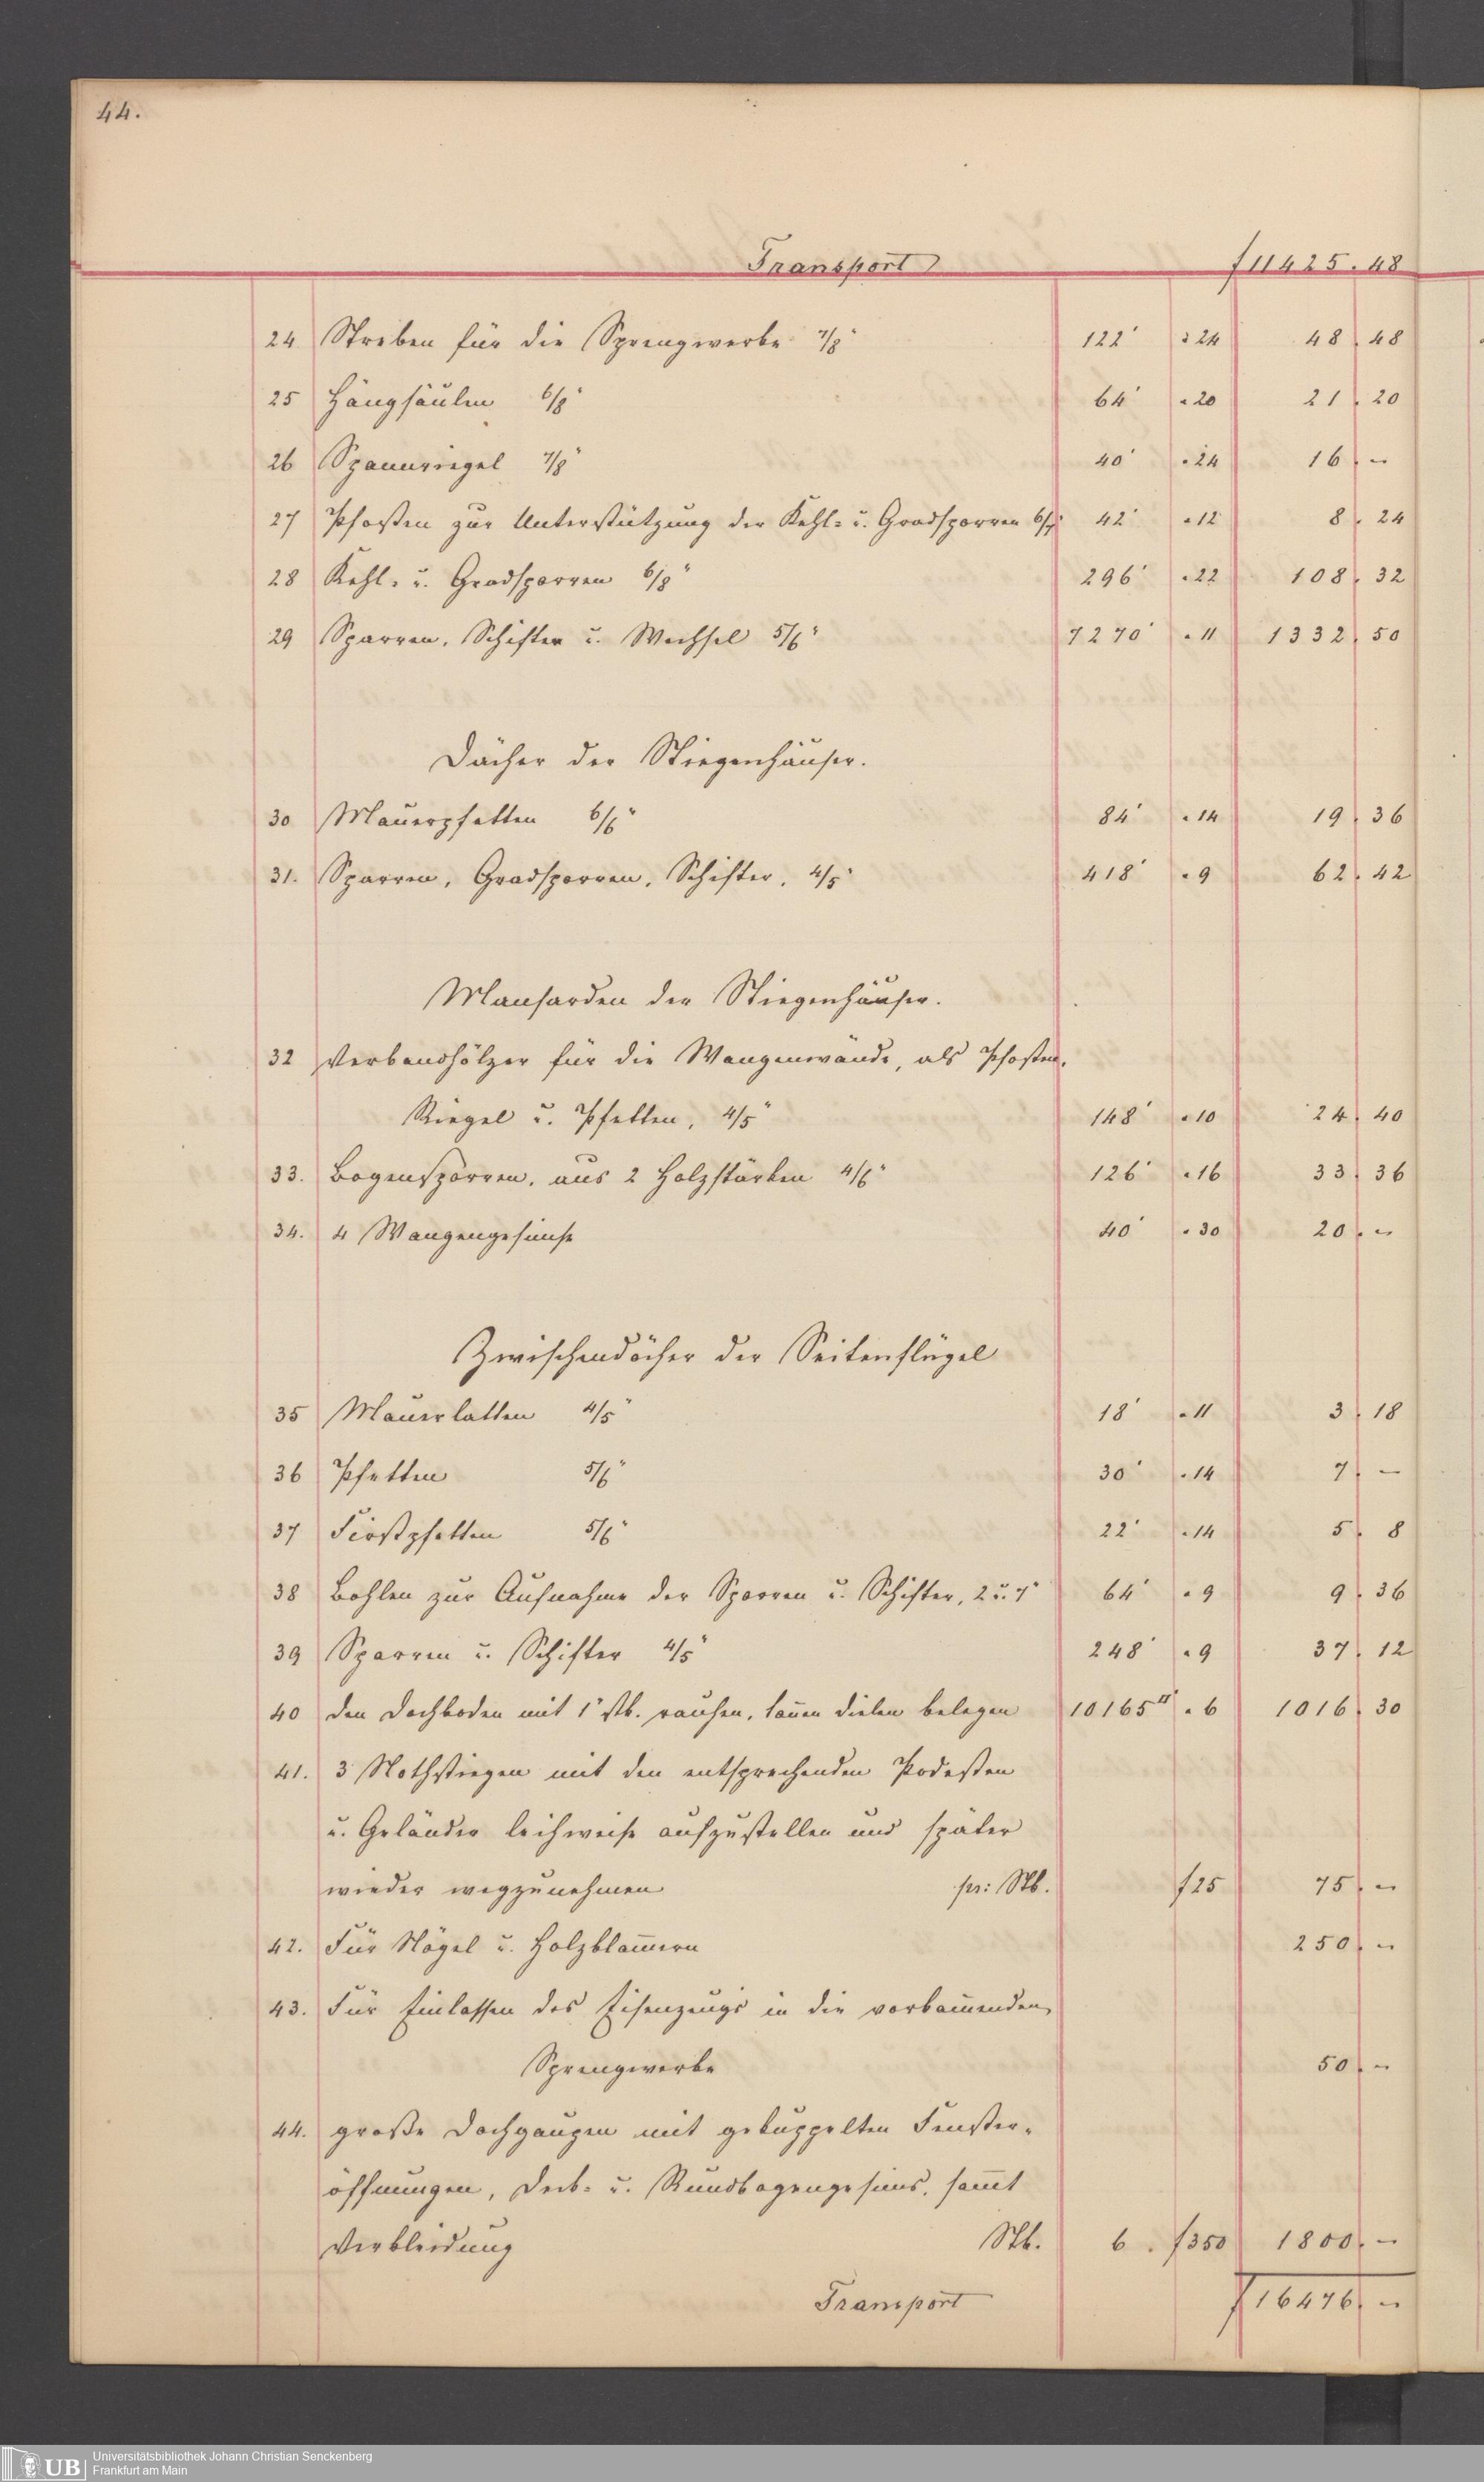 44.
Transport f 11425. 48
24 Streben für die Sprengwerke 7/8" 122' à 24 48. 48
25 Hängsäulen 6/8" 64' " 20 21. 20
26 Spannriegel 7/8" 40' " 24 16. –
27 Pfosten zur Unterstützung der Kehl- u. Gradsparren 6/7" 42' " 12 8. 24
28 Kehl- u. Gradsparren 6/8" 296' " 22 108. 32
29 Sparren, Schifter u. Wechsel 5/6" 7270' " 11 1332. 50
Dächer der Stiegenhäuser.
30 Mauerpfetten 6/6" 84' " 14 19. 36
31. Sparren, Gradsparren, Schifter, 4/5" 418' " 9 62. 42
Mansarden der Stiegenhäuser.
32 Verbandhölzer für die Wangenwände, als Pfosten,
Riegel u. Pfetten, 4/5" 148' " 10 24. 40
33. Bogensparren, aus 2 Holzstärken 4/6" 126' " 16 33. 36
34. 4 Wangengesimse 40' " 30 20. –
Zwischendächer der Seitenflügel
35 Mauerlatten 4/5" 18' " 11 3. 18
36 Pfetten 5/6" 30' " 14 7. –
37 Firstpfetten 5/6" 22' " 14 5. 8
38 Bohlen zur Aufnahme der Sparren u. Schifter, 2 u. 7" 64' " 9 9. 36
39 Sparren u. Schifter 4/5" 248' " 9 37. 12
40 den Dachboden mit 1" stk. rauhen, tannen Dielen belegen 10165□' " 6 1016. 30
41. 3 Nothstiegen mit den entsprechenden Podesten
u. Geländer leihweise aufzustellen und später
wieder wegzunehmen pr: Stk. f 25 75. –
42. Für Nägel u. Holzklam̄ern 250. –
43. Für Einlassen des Eisenzeugs in die vorkom̄enden
Sprengwerke 50. –
44. große Dachgaupen mit gekuppelten Fenster-
öffnungen, Deck- u. Rundbogengesims, sam̄t
Verkleidung Stk. 6. f 350 1800. –
Transport f 16476. –
UB Universitätsbibliothek Johann Christian Senckenberg
Frankfurt am Main